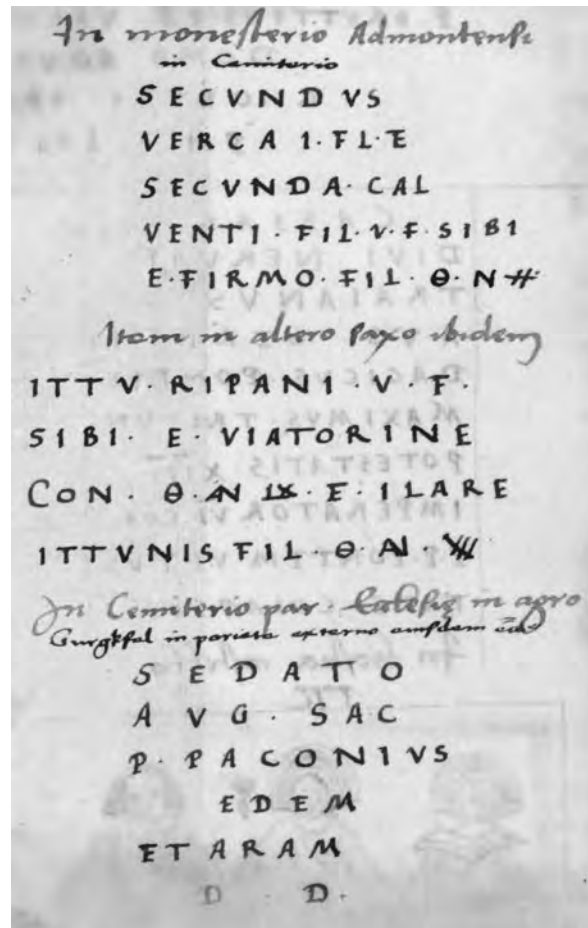 In monesterio Admontensi
in Cemiterio
SECVNDVS
VERCA I·FL·E
SECVNDA·CAL
VENTI·FIL·V·F·SIBI
E·FIRMO·FIL·Θ·N
Item in altero saxo ibidem
ITTV·RIPANI·V·F·
SIBI·E·VIATORINE
CON·Θ·AN LX·E·ILARE
ITTVNIS FIL·Θ·AN·
In Cemiterio par· Ecclesię in agro
Gurgkfal in pariete externo eiusdem
SEDATO
AVG·SAC
P·PACONIVS
EDEM
ET ARAM
D D·